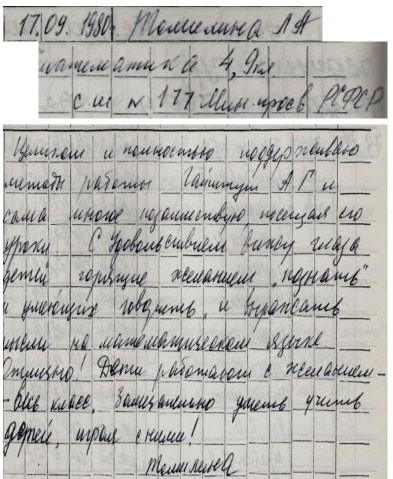 17.09.1980г. Томилина Л А
математика 4, 9 кл
с.ш № 177 Мин.просв РСФСР
Целиком и полностью поддерживаю
методы работы Гайштут А.Г и
сама многое позаимствую посещая его
уроки. С удовольствием вижу глаза
детей горящие желанием „познать"
и умеющих говорить, и выражать
мысли на математическом языке
Отлично! Дети работают с желанием-
-весь класс. Замечательно уметь учить
детей, играя с ними!
Томилина